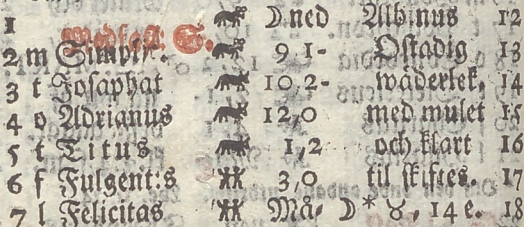 1 ☽ ned Albinus 12
Medfast. S.
2 m Simplic. 9 1- Ostadig 13
3 t Josaphat 10,2- wäderlek, 14
4 o Adrianus 12,0 med mulet 15
5 t Titus 1,2 och klart 16
6 f Fulgent:s 3,0 til skiftes. 17
7 l Felicitas Må- ☽ * ♉, 14 e. 18